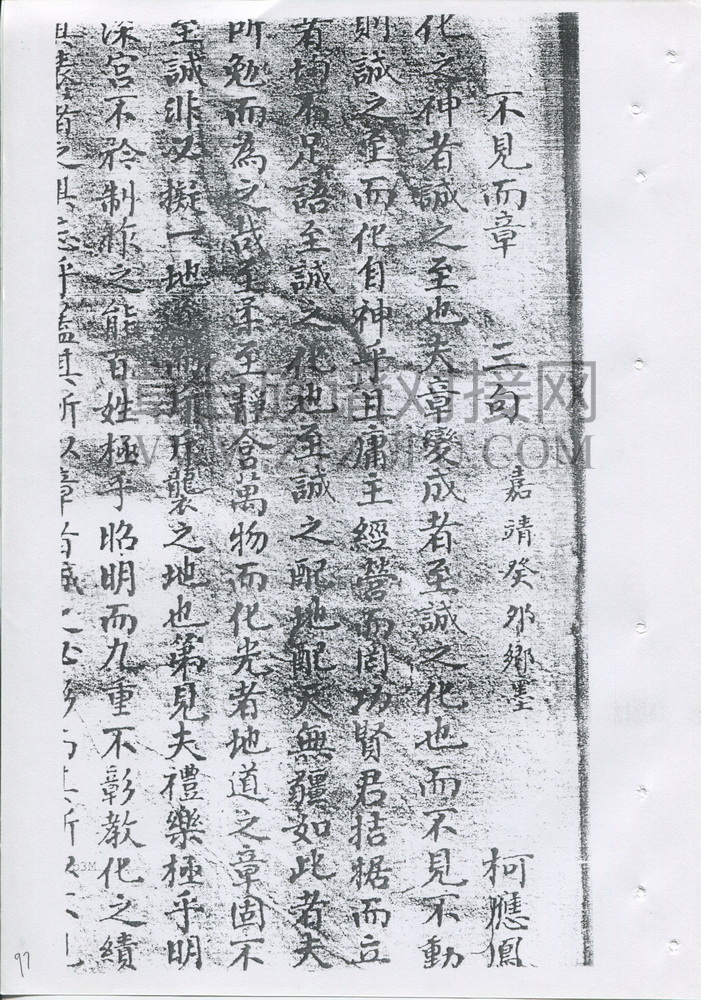 不見而章 三句 嘉靖癸卯鄉墨 柯應鳳
化之神者誠之至也夫章變成者至誠之化也而不見不動
則誠之至而化自神乎且庸主經營而罔功賢君拮据而立
者均不足語至誠之化也至誠之配地配天無疆如此者夫
所勉而為之哉至柔至靜含萬物而化光者地道之章固不
至誠非必擬一地襲之地也第見夫禮樂極乎明
深宮不矜制作之能百姓極乎昭明而九重不彰教化之績
者之其忘乎蓋其所以章者誠之必
对接网
97